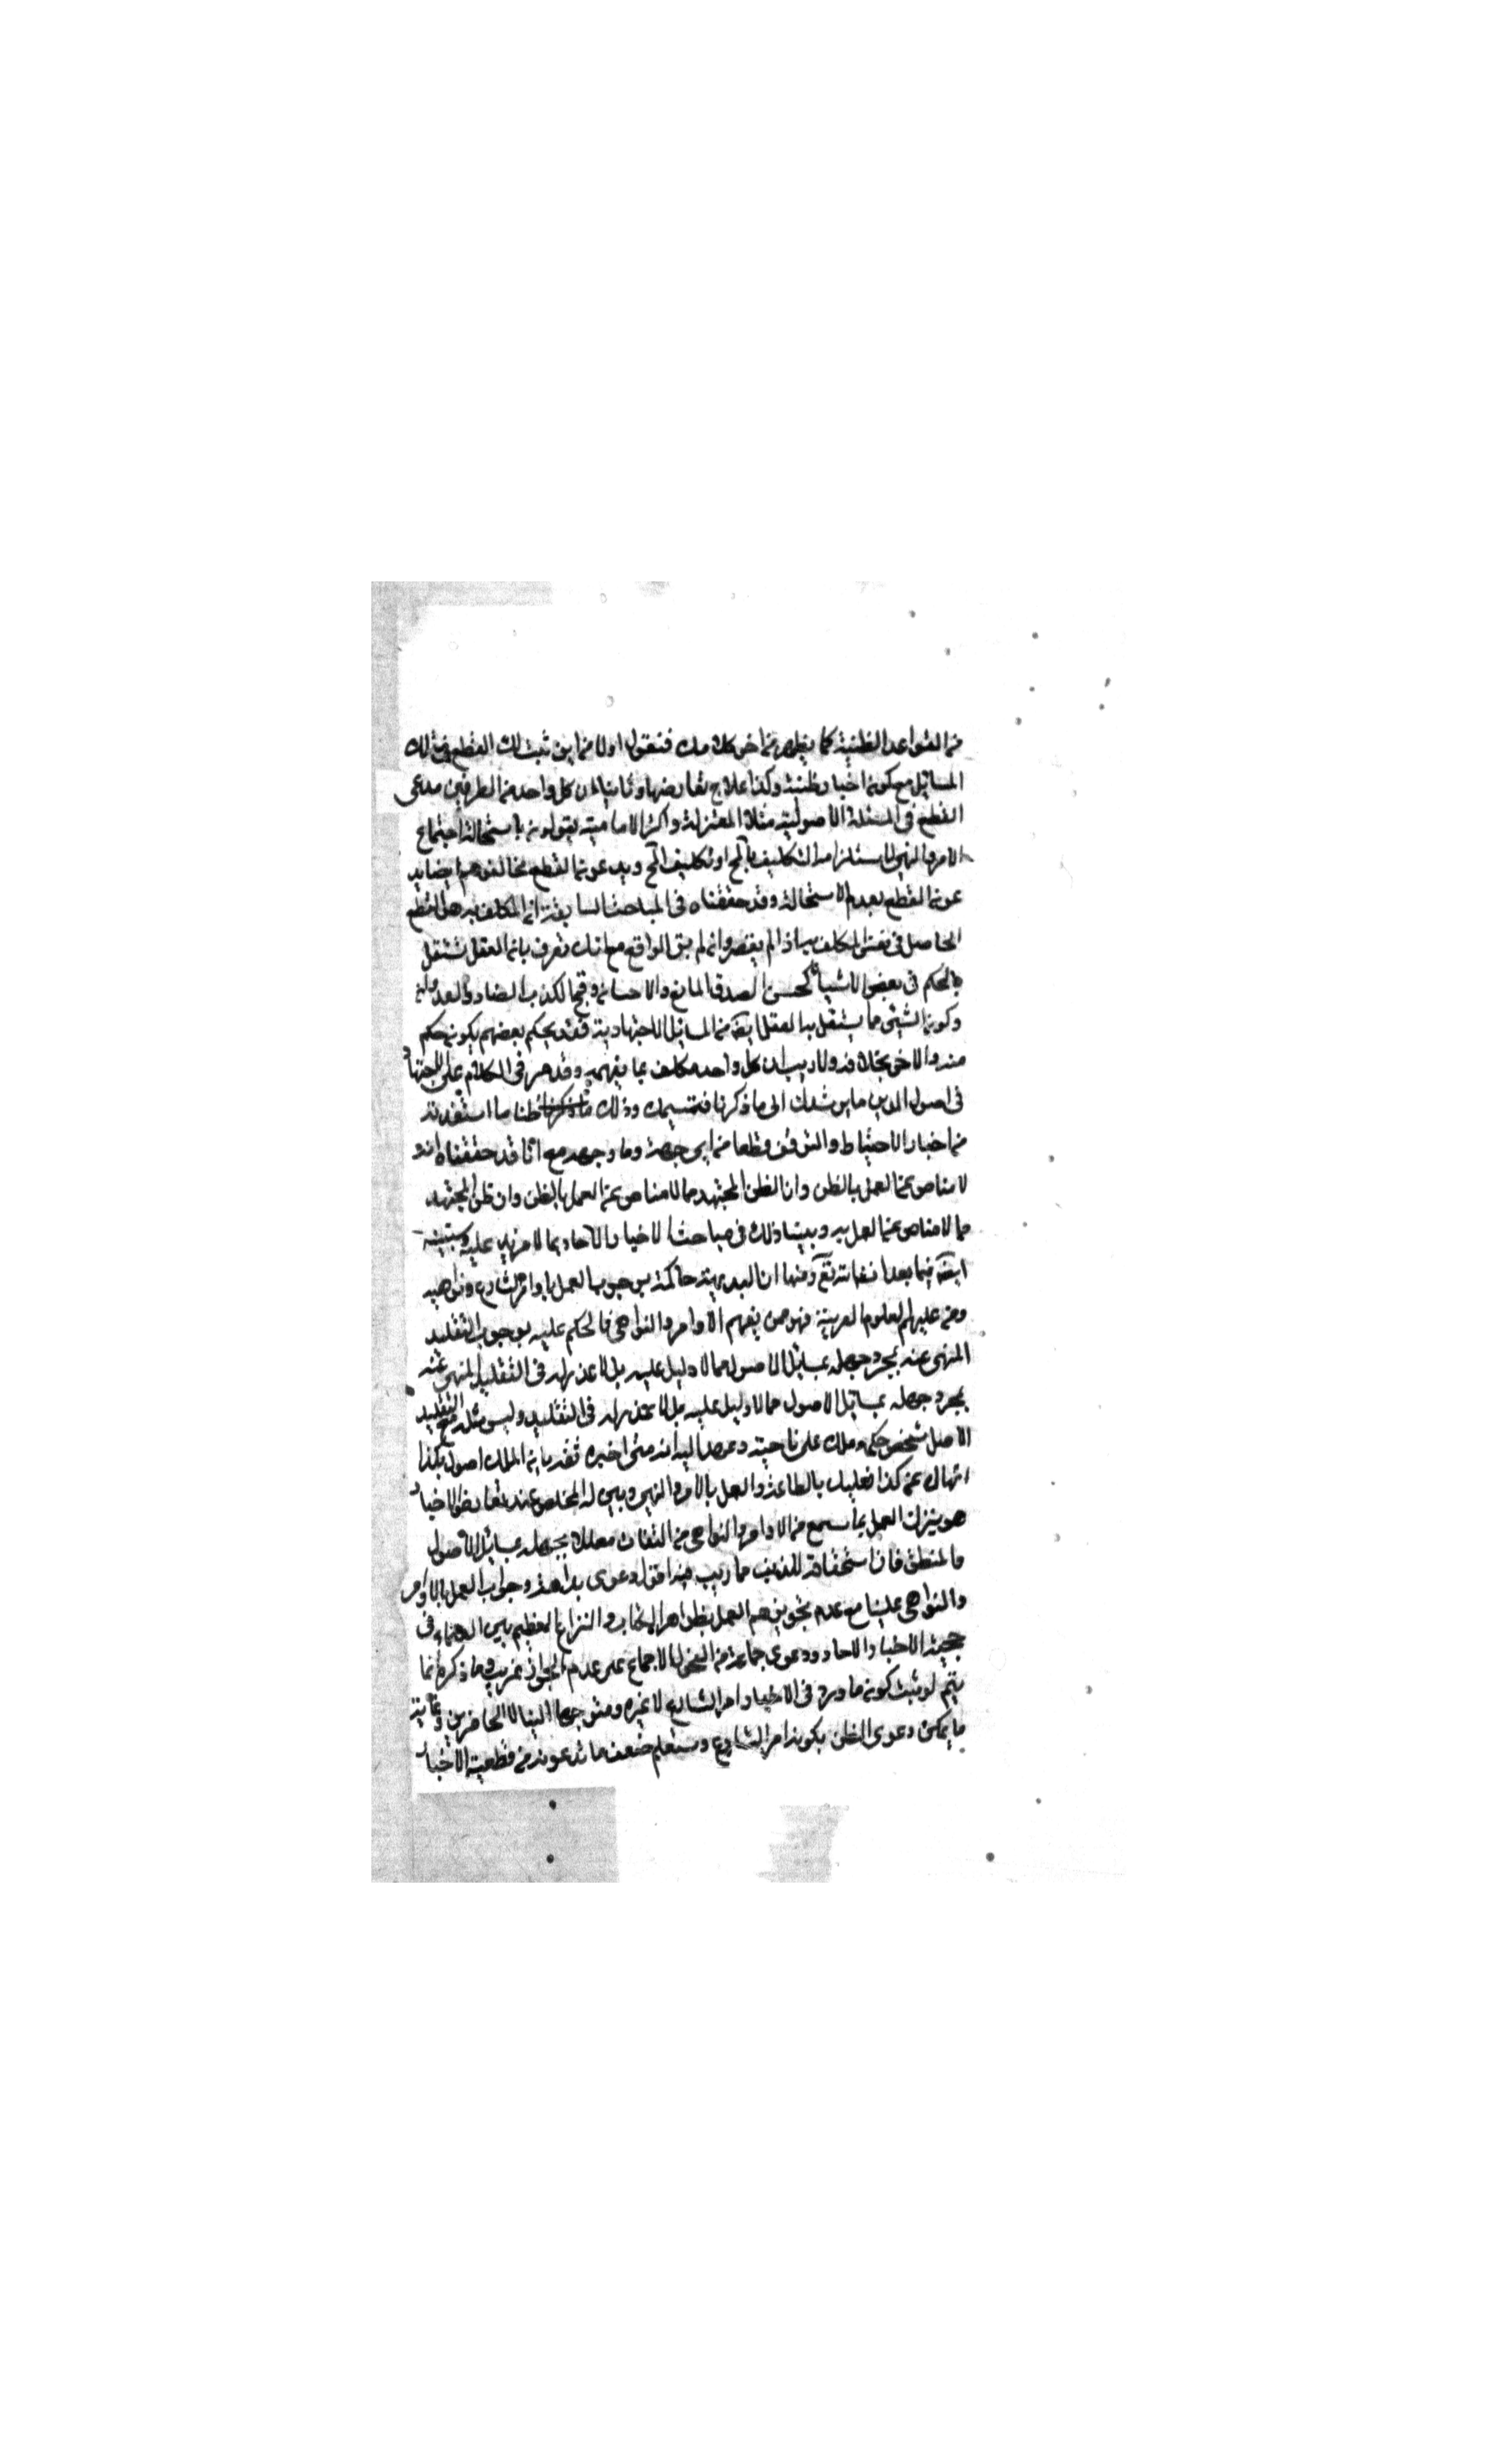 من القواعد الظنية كما يظهر من اخر كلامك فنقول اولا من اين ثبت لك القطع في تلك
المسائل مع كون اخبارها ظنية وكذا علاج تعارضها وثانيا ان كل واحد من الطرفين مدعى
القطع في المسئلة الاصولية مثلا المعتزلة واكثر الامامية يقولون باستحالة اجتماع
الامر والنهي لاستلزامه التكليف بالمح او تكليف المح ويدعون القطع ومخالفوهم ايضا يد
عون القطع بعدم الاستحالة وقد حققناه في المباحث السابقة ان المكلف به هو القطع
الحاصل في نفس المكلف به اذا لم يقصر وان لم يبق الواقع مع انك تعرف بان العقل يستقل
بالحكم في بعض الاشياء كحسن الصدق النافع والاحسان وقبح الكذب الضار والعدوان
وكون الشيئ مما يستقل به العقل ايضا من المسائل الاجتهادية فقد يحكم بعضهم بكون حكم
منه والاخر بخلافه ولا ريب ان كل واحد مكلف بما يفهمه وقد مر في الكلام على الاجتهاد
في اصول الدين ما يرشدك الى ما ذكرنا فتسميتك وذلك ظنا ما استفدته
من اخبار الاحتياط والتوقف قطعا من اى جهة وما وجهه مع انا قد حققناه انه
لا مناص عن العمل بالظن وان الظن المجتهد مما لا مناص عن العمل بالظن وان ظن المجتهد
مما لا مناص عن العمل به وبينا ذلك في مباحث الاخبار الآحاد بما لا مزيد عليه وسنبينه
ايضا فيما بعد انشاء الله تع ومنها ان البديهية حاكمة بوجوب العمل باوامر الشارع ونواهيه
ومن علم العلوم العربية فهو ممن يفهم الاوامر والنواهي فالحكم عليه بوجوب التقليد
المنهى عنه بمجرد جهله بمسائل الاصول مما لا دليل عليه بل لا عذر له في التقليد المنهى عنه
بمجرد جهله بمسائل الاصول مما لا دليل عليه بل لا عذر له في التقليد وليس مثله مع التقليد
الا مثل شخص حكمه ملك على ناحية وعهد اليه انه متى اخبره ثقة بان الملك امره بكذا
انهاك عن كذا فعليك بالطاعة والعمل بالامر والنهي وبين له المخلص عند تعارض الاخبار
هو يترك العمل بما سمع من الاوامر والنواهي من الثقات معللا بجهله بمسائل الاصول
والمنطق فان استحقاقه للذم مما ريب فيه اقول دعوى بداهة وجوب العمل بالاوامر
والنواهي علينا مع عدم تجويزهم العمل بظواهر الكتاب والنزاع العظيم بين العلماء في
حجية الاخبار الآحاد ودعوى جماعة من الفحول الاجماع على عدم الجواز غريب وما ذكره انما
يتم لو ثبت كون ما ورد في الاخبار امر الشارع لا غيره ومتوجها الينا لا الحاضرين وغاية
ما يمكن دعوى الظن بكونه امر الشارع وستعلم ضعف ما تدعونه من قطعية الاخبار